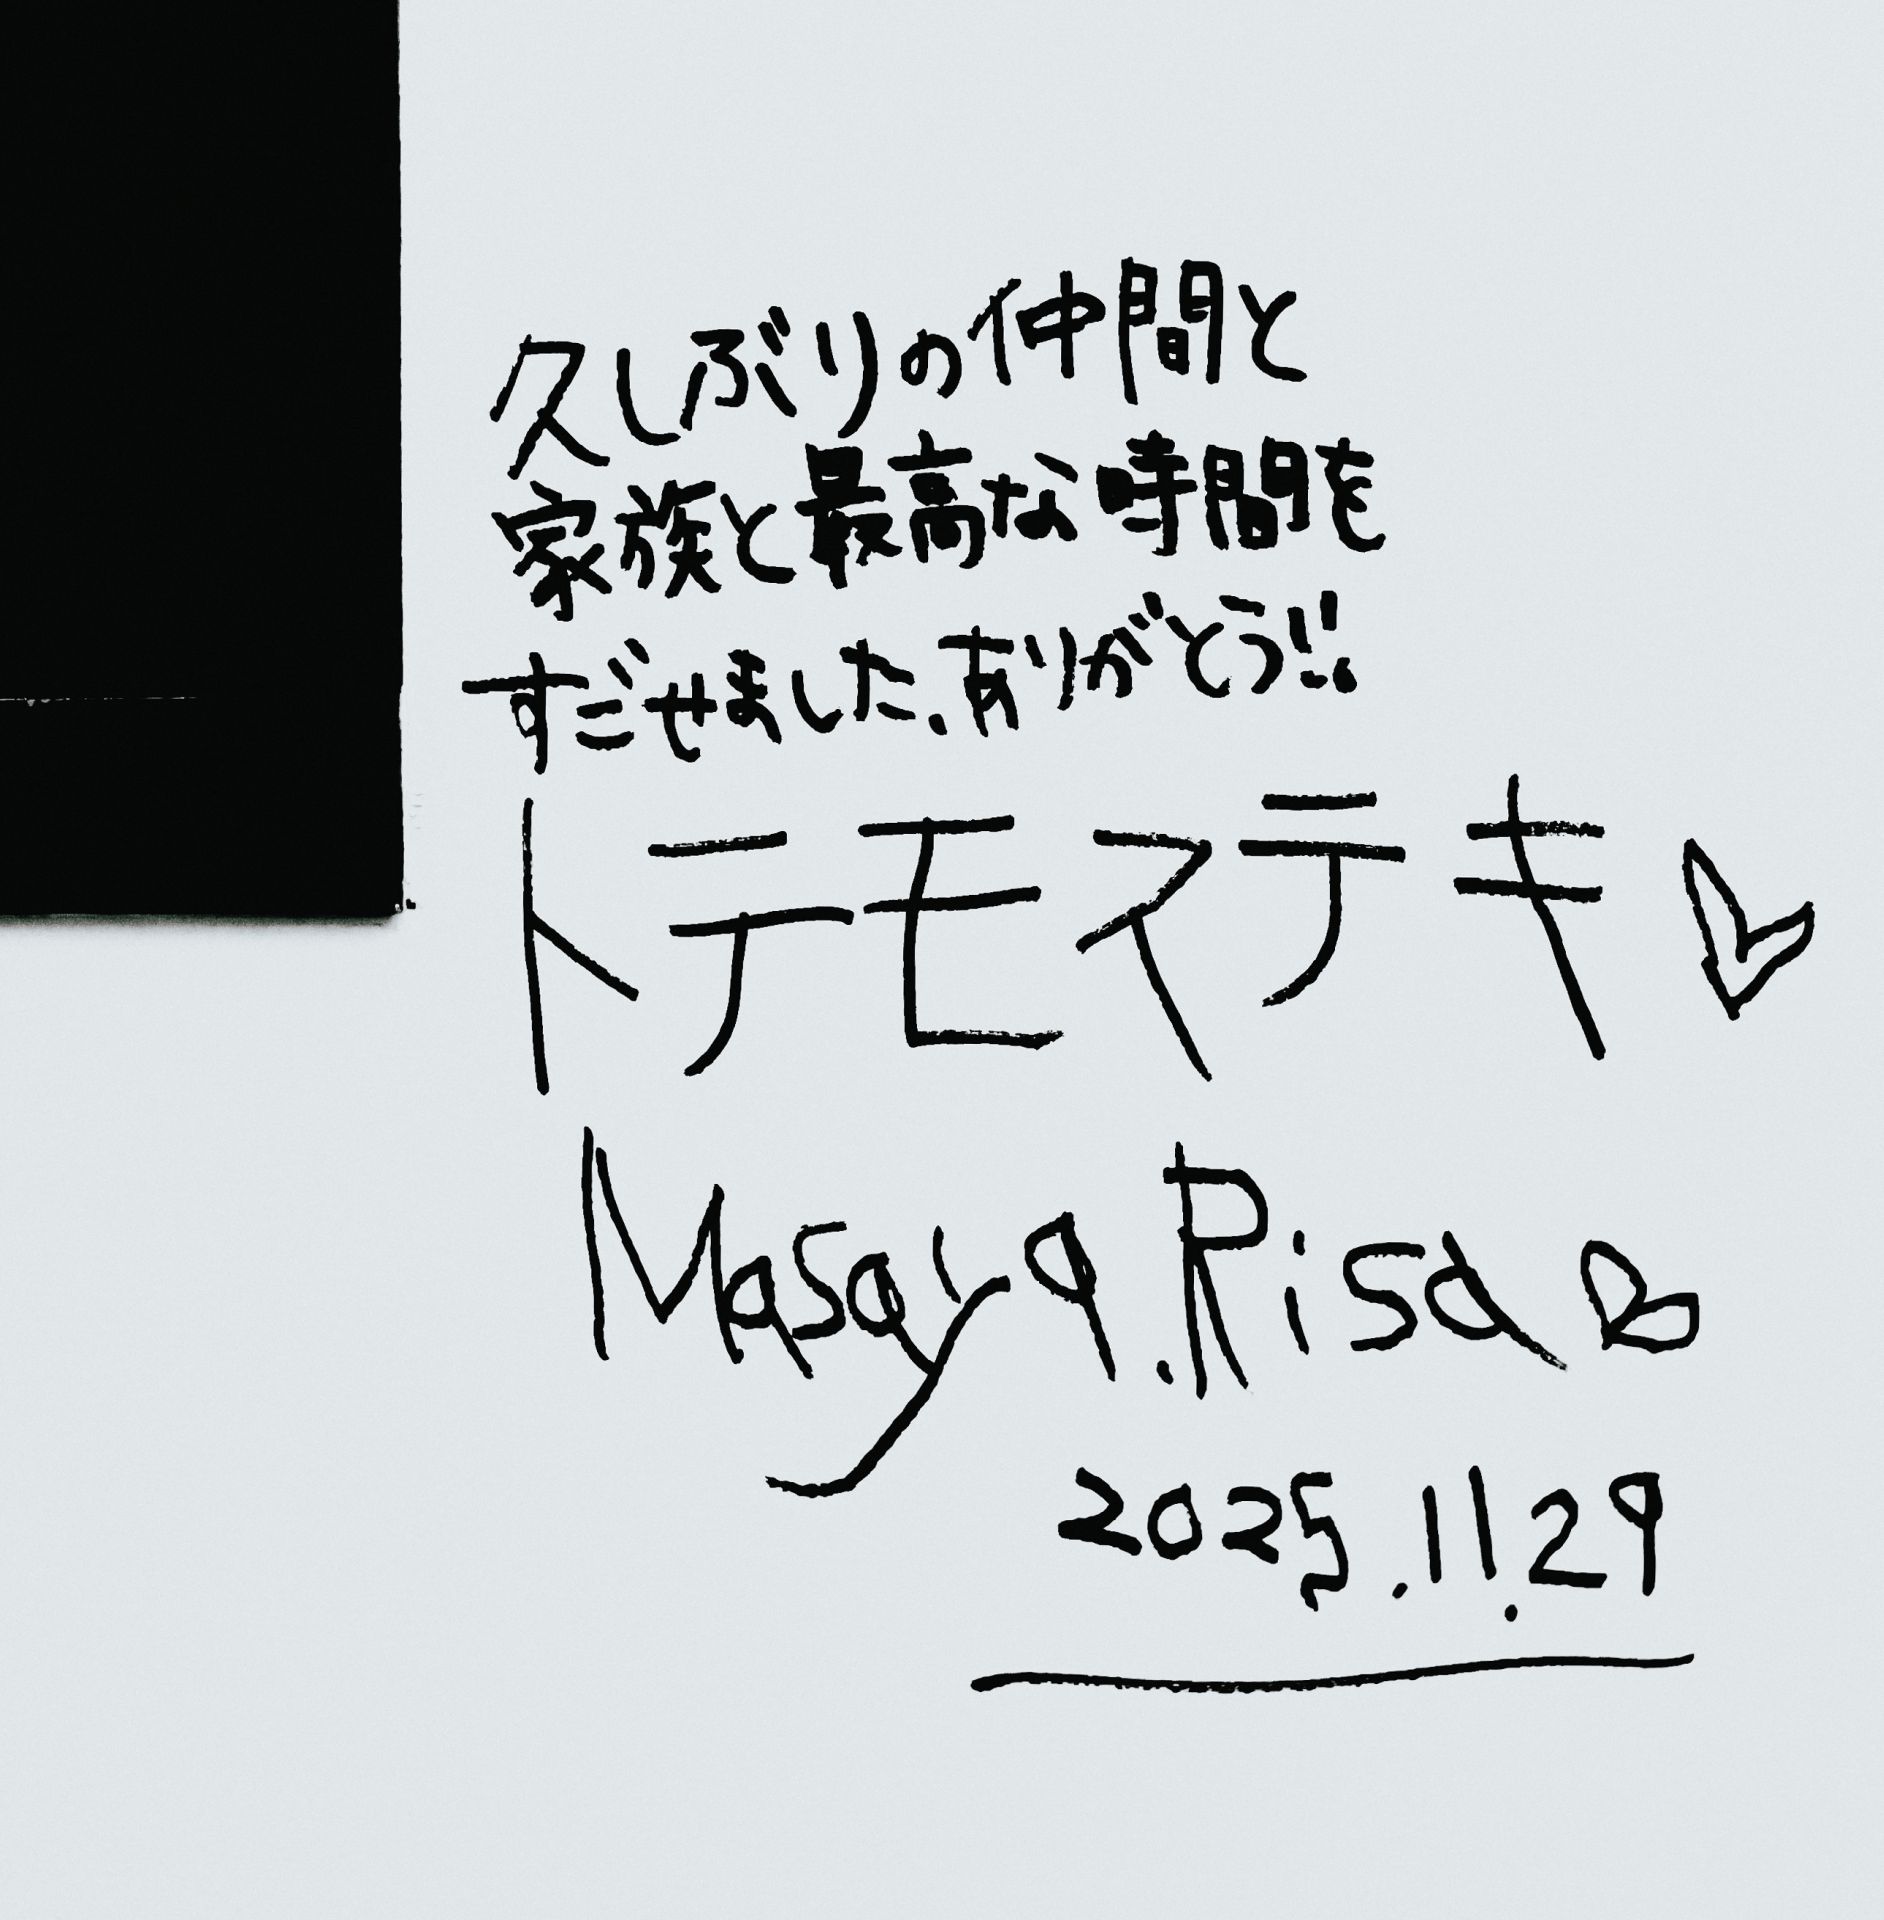 久しぶりの仲間と
家族と最高な時間を
すごせました、ありがとう!!
トテモステキ♡
Masaya.Risa♡
2025.11.29